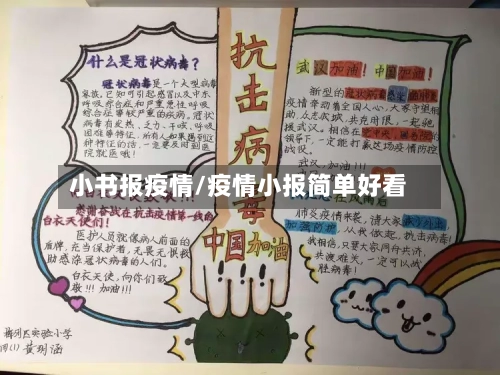 什么是冠状病毒?
冠状病毒是一个大型病毒
家族,已知可引起感冒以及中东
呼吸综合征和严重急性呼吸
综合征等较严重的疾病,冠状
病毒有发热、乏力、干咳、呼吸
困难等特征,所有人如果遇到这
种特征的话,一定要及时到医
院就医哦!
抗击病毒
中国加油
武汉加油!中国加油!
新型的
疫情牵动着全国人心,大家守望相
助,众志成城,共克时艰,一起驰
援武汉。相信在
领导下,一定能打赢这场疫情防控
战役。
武汉,加油!!!
小书报疫情/疫情小报简单好看
感谢奋战在抗击疫情第一线的
白衣天使们!
医护人员就像病人前面的
盾牌,充当保护着,无畏无惧救
助感染冠状病毒的人们。
白衣天使,向你们致
敬!!!加油!!!
肺炎疫情来袭,请大家
从我做起,抗击病毒!
我相信,只要大家同舟共济,
共渡难关,一定可以战
胜病毒!
实验小学
四(1)黄玥涵